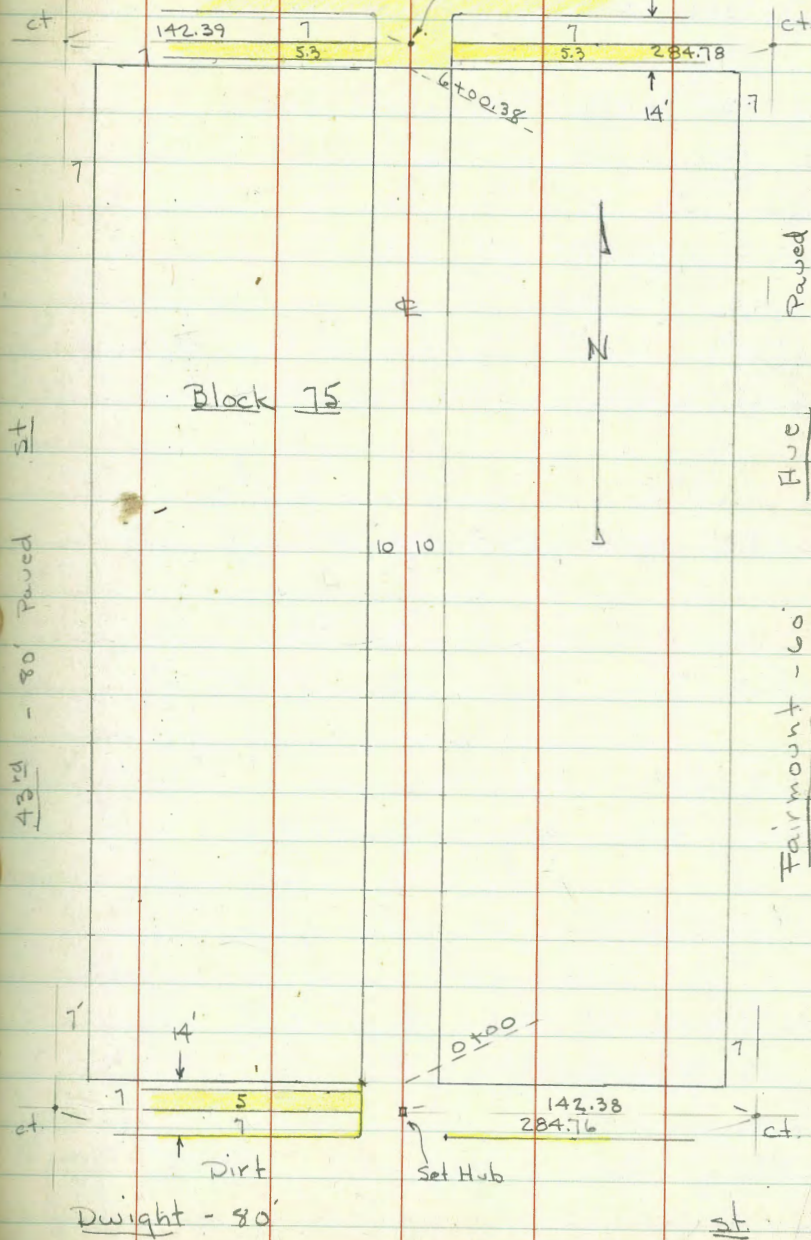 ct
142.39
7
7
ct.
7
5.3
5.3
284.78
6+00.38
14'
7
7
Paved
℄
N
Block 75
Ave
St
10 10
43rd - 80' Paved
Fairmount - 60'
7'
14'
0+00
7
7
5
142.38
7
284.76
ct.
ct.
Dirt
Set Hub
Dwight - 80'
St.